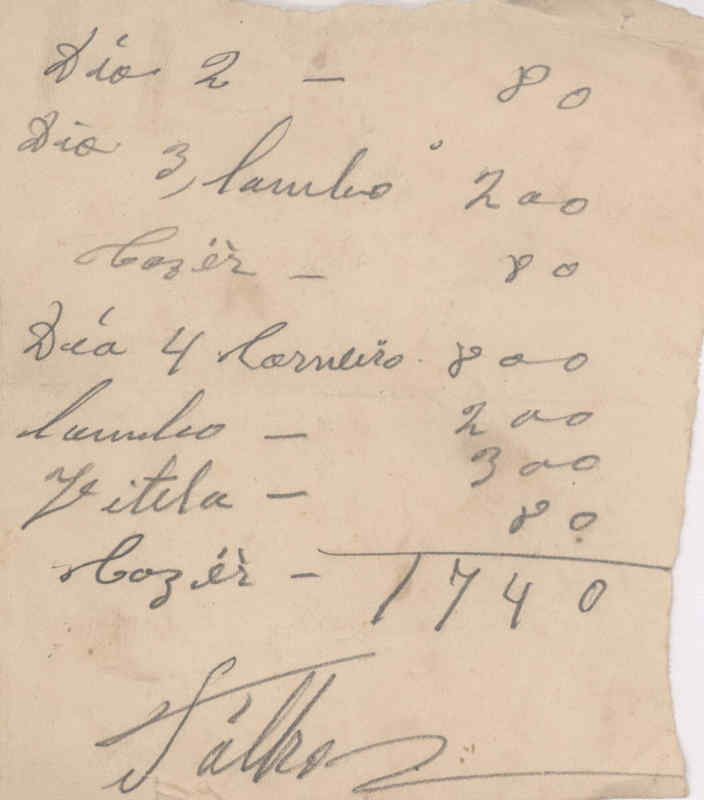 Dia 2 — 80
Dia 3, lombo 200
Cozér — 80
Día 4 Carneiro 800
lombo — 200
Vitela — 300
Cozér — 80
1740